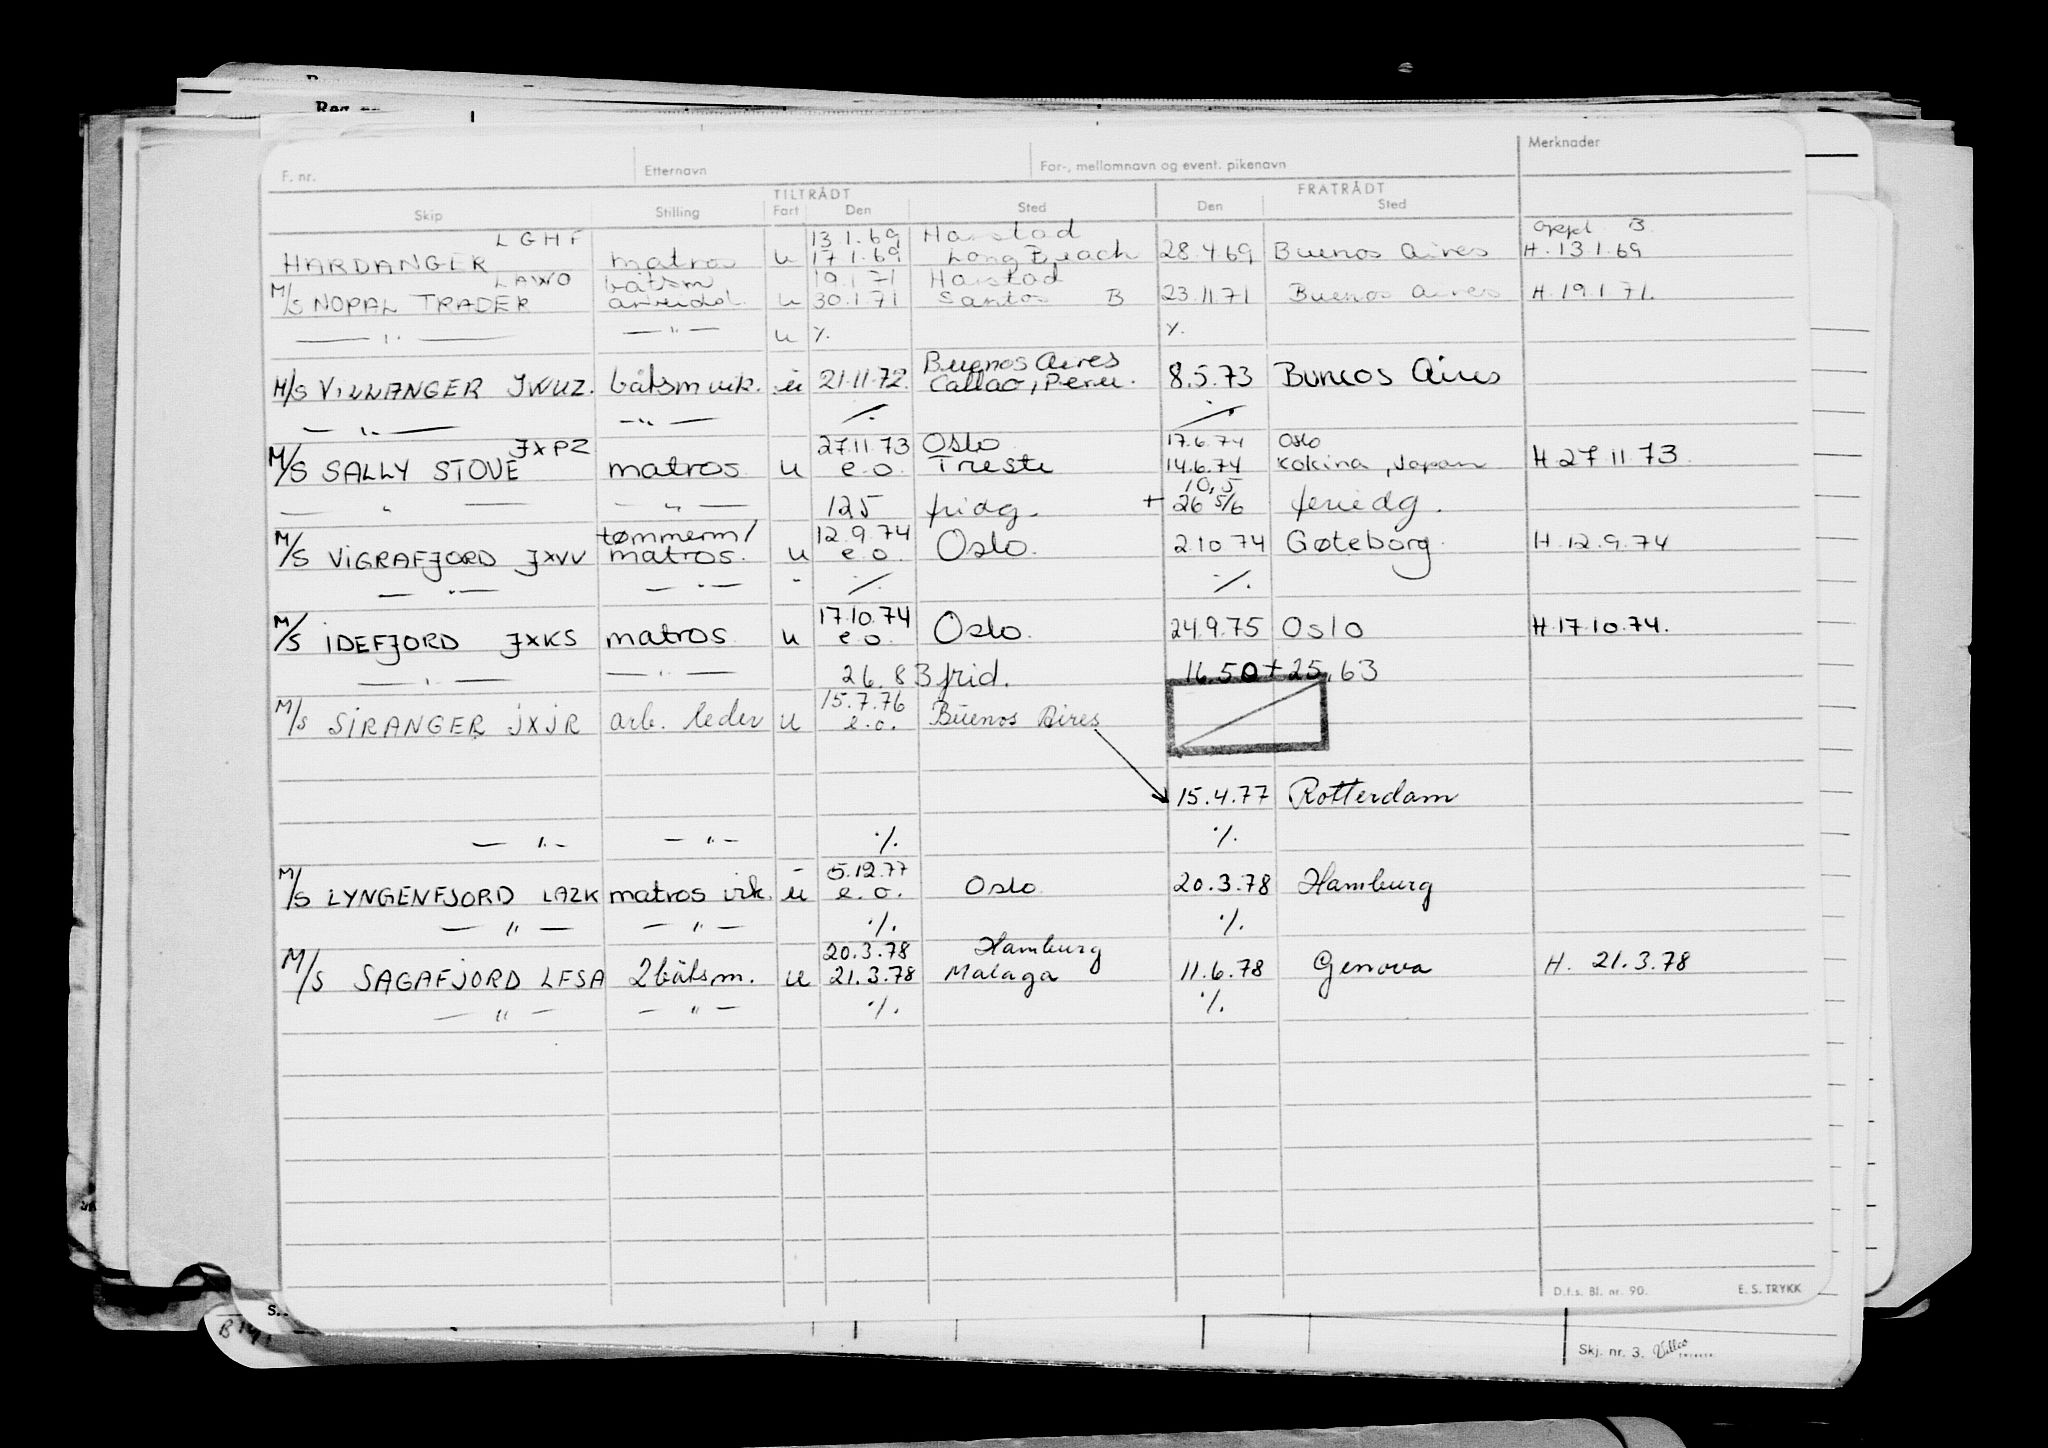 F. nr. Etternavn For-, mellomnavn og event. pikenavn Merknader
TILTRÅDT FRATRÅDT
Skip Stilling Fart Den Sted Den Sted
LGHF 13.1.69 Harstad oppl B
HARDANGER matros u 17.1.69 Long Beach 28.4.69 Buenos Aires H.13.1.69
LAWO båtsm 19.1.71 Harstad
M/S NOPAL TRADER arbeidsl. u 30.1.71 Santos B 23.11.71 Buenos Aires H.19.1.71.
— " — — " — u ./. ./.
Buenos Aires
M/S VILLANGER JWUZ. båtsm vik. u 21.11.72. Callao, Peru. 8.5.73 Buneos Aires
— " — — " — ./. ./.
JXPZ 27.11.73 Oslo 17.6.74 Oslo
M/S SALLY STOVE matros u e.o. Trieste 14.6.74 Kokina, Japan H 27 11 73.
10,5
— " — — " — 125 fridg. + 26 5/6 feriedg.
tømmerm/ 12.9.74
M/S VIGRAFJORD JXVV matros. u e.o. Oslo. 2.10 74 Gøteborg. H.12.9.74
— " — — " — " ./. ./.
17.10.74
M/S IDEFJORD JXKS matros u e.o. Oslo. 24.9.75 Oslo H.17.10.74.
— " — — " — 26.83 frid. 16.50 + 25,63
15.7.76
M/S SIRANGER JXJR arb. leder u e.o. Buenos Aires
15.4.77 Rotterdam
— " — — " — ./. ./.
5.12.77
M/S LYNGENFJORD LAZK matros vik. u e.o. Oslo 20.3.78 Hamburg
— " — — " — ./. ./.
20.3.78 Hamburg
M/S SAGAFJORD LFSA 2 båtsm. u 21.3.78 Malaga 11.6.78 Genova H. 21.3.78
— " — — " — ./. ./.
D.f.s. Bl. nr. 90. E. S. TRYKK
Skj. nr. 3.